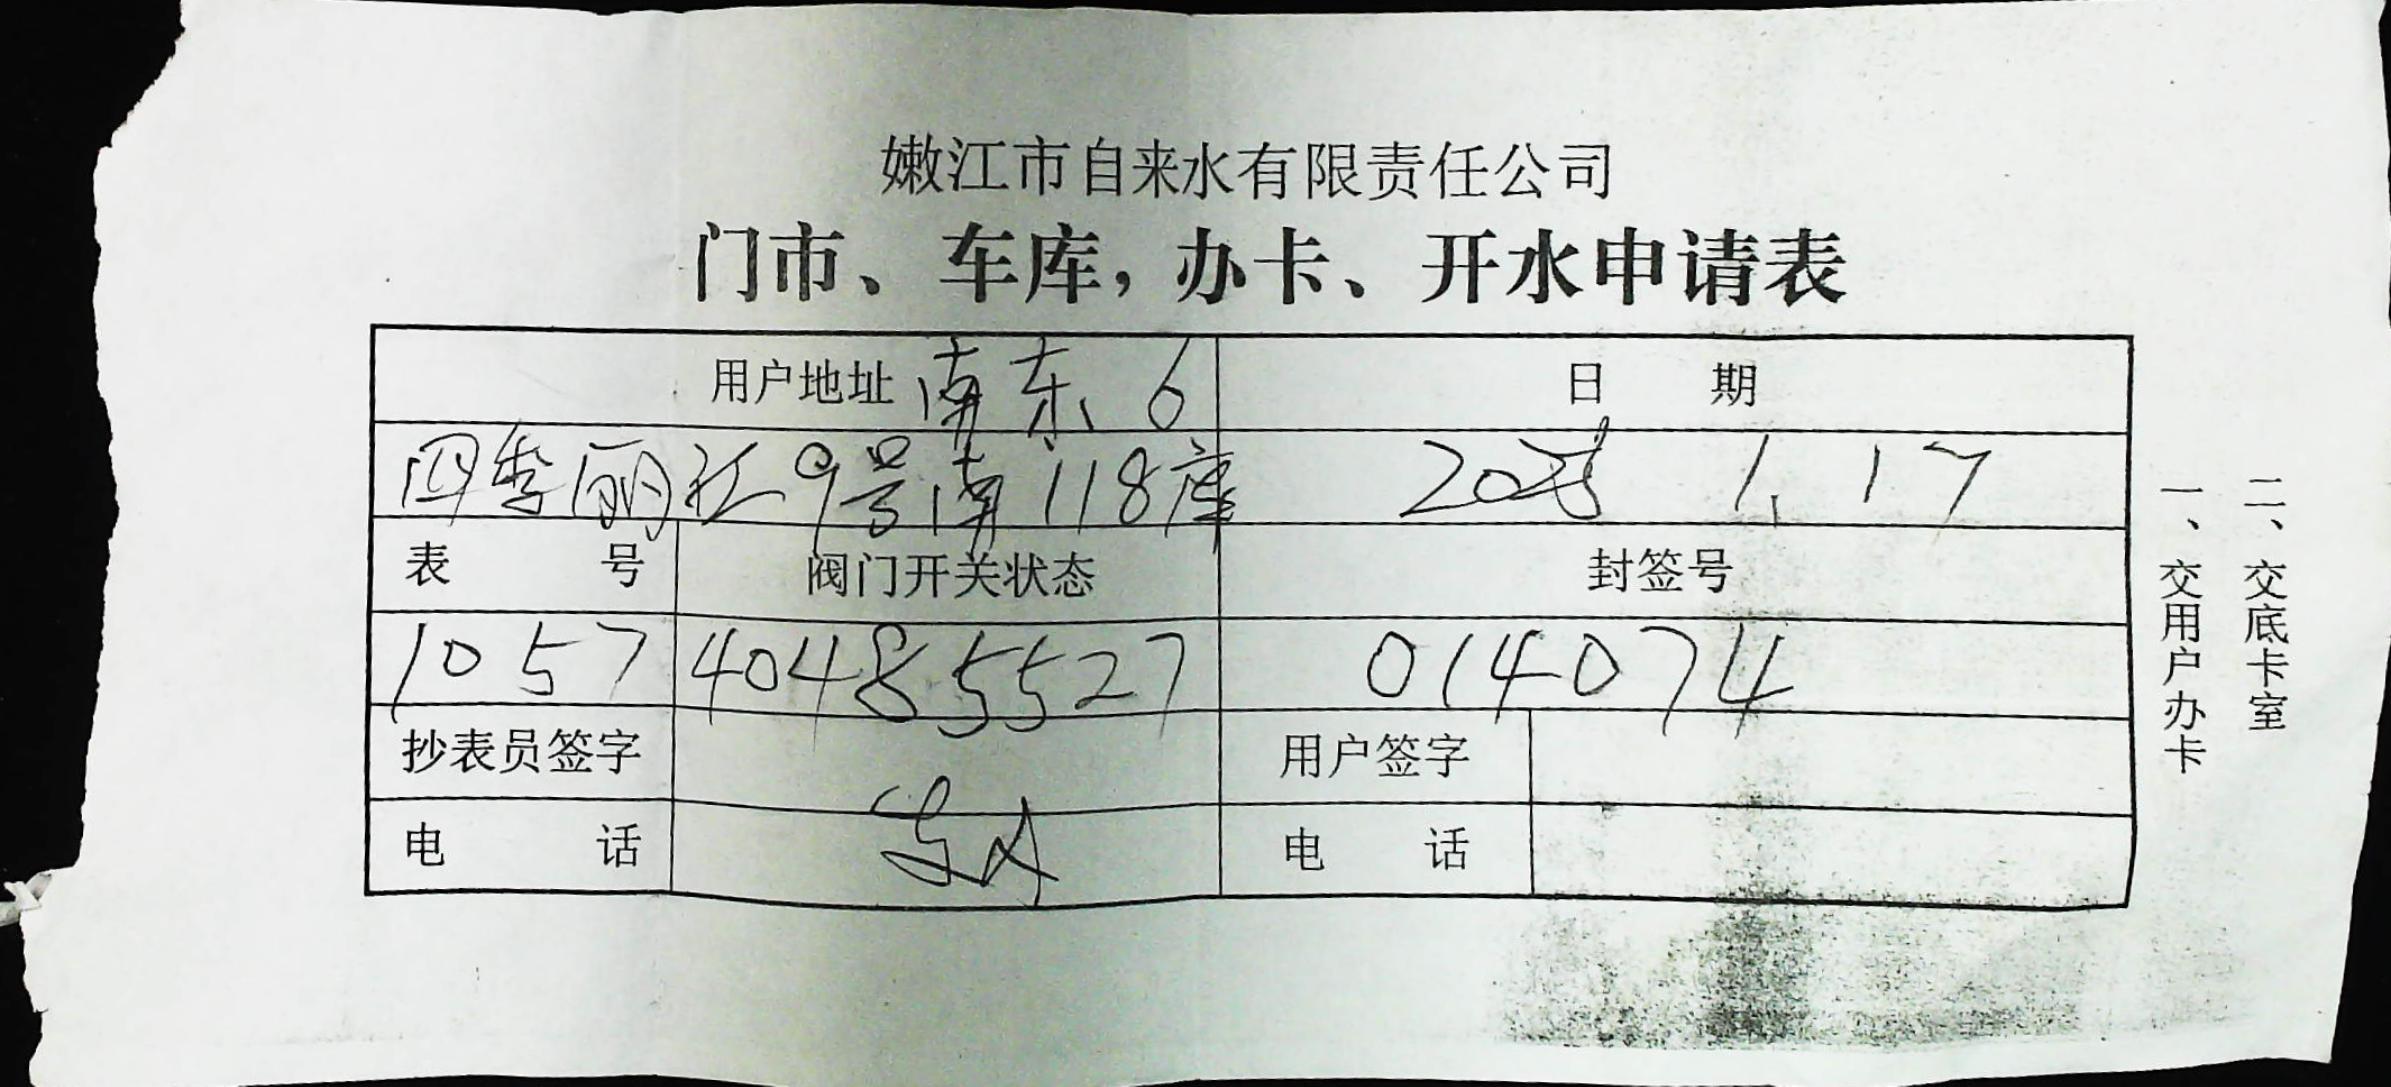 嫩江市自来水有限责任公司
门市、车库，办卡、开水申请表
用户地址 南东6 日 期
四季丽江9号南118库 2025 1.17
表 号 阀门开关状态 封签号
1057 40485527 014074
抄表员签字 用户签字
电 话 电 话
一、交用户办卡
二、交底卡室